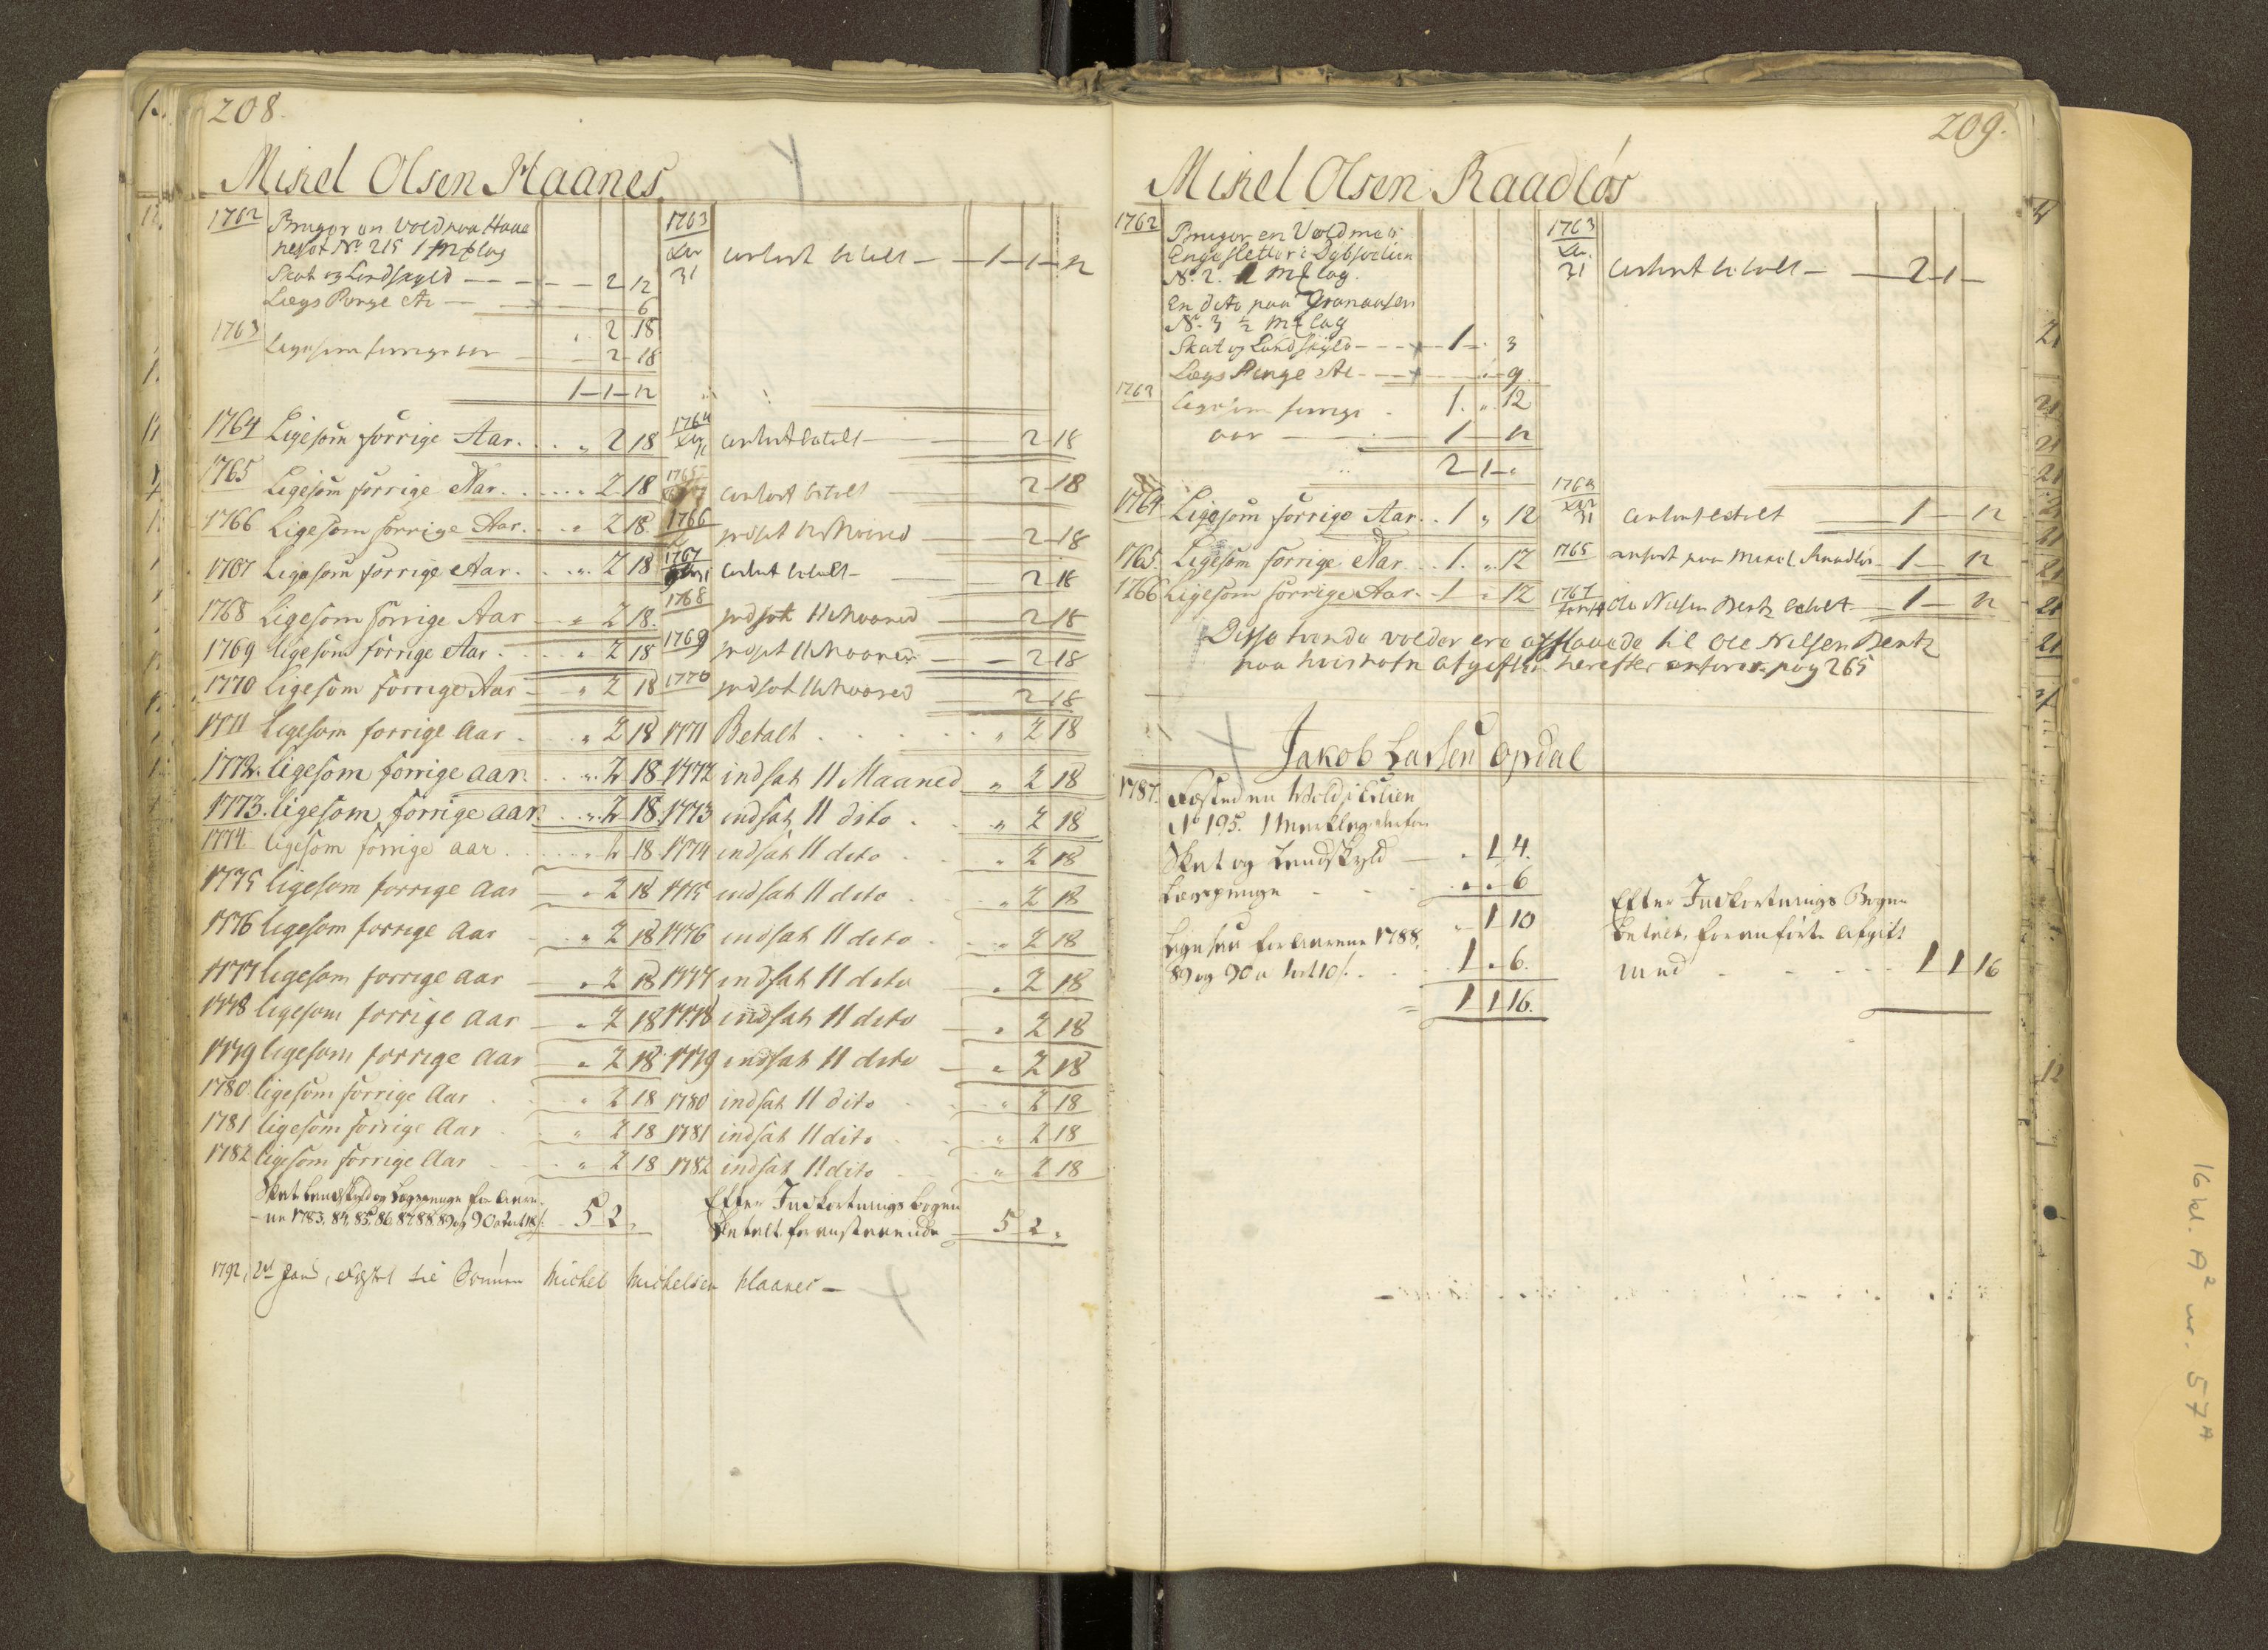 208.
Mikel Olsen Haanes
1762 Bruger en Vold paa Haa
neset No 215 1 mklag
Skat og Landskyld — 2 12
Lægs Penge etc — 6
" 2 18
1763 Ligesom forrige aar — 2 18
1 — 1 — 12
1763 31 contant betalt — 1 — 1 — 12
1764 Ligesom forrige Aar. . . " 2 18 1764 contant betalt — 2 18
1765 Ligesom forrige Aar. . . . . 2 18 1765 contant betalt — 2 18
1766 Ligesom forrige Aar. . " 2 18. 1766 indsat 11 Maaned — 2 18
1767 Ligesom forrige Aar. . . " 2 18 1767 contant betalt — 2 18
1768 Ligesom forrige Aar — " 2 18. 1768 indsat 11 Maaned — 2 18
1769 ligesom forrige Aar . . . " 2 18 1769 indsat 11 Maaned — 2 18
1770 ligesom forrige Aar — " 2 18 1770 indsat 11 Maaned 2 18
1771 ligesom forrige Aar . " 2 18 1771 Betalt . . . . . " 2 18
1772. ligesom forrige aar. . " 2 18. 1772 indsat 11 Maaned " 2 18
1773. ligesom forrige aar. . " 2 18. 1773 indsat 11 dito . . " 2 18
1774. ligesom forrige aar . . . . 2 18. 1774 indsat 11 dito . . " 2 18
1775 ligesom forrige Aar — " 2 18 1775 indsat 11 dito . . " 2 18
1776 ligesom forrige Aar — " 2 18 1776 indsat 11 dito . . " 2 18
1777 ligesom forrige Aar — " 2 18. 1777 indsat 11 dito — " 2 18
1778 ligesom forrige Aar — " 2 18 1778 indsat 11 dito — " 2 18
1779 ligesom forrige Aar — " 2 18. 1779 indsat 11 dito — " 2 18
1780 ligesom forrige Aar . . " 2 18 1780 indsat 11 dito . . " 2 18
1781 ligesom forrige Aar . . " 2 18 1781 indsat 11 dito . . " 2 18
1782 ligesom forrige Aar . . " 2 18 1782 indsat 11 dito . . " 2 18
Skat Landskyld og Lægspenge for Aare-
ne 1783. 84. 85. 86. 87. 88. 89 og 90 a 2 ort 18 s. 5 2 "
Efter Indkortnings bogen
betalt foranstaaende — 5 2 "
1792, Jan, Sönnen Michel Michelsen Haanes —
209.
Mikel Olsen Raadlös
1762 Bruger en Vold med
Engesletter i Dybsvelien
No. 2. 1 mklag.
En dito paa Granaasen
No. 3 ½ mklag
Skat og Landskyld — 1 — " 3
Lægs Penge etc — " 9
1. " 12
1763 ligesom forrige
aar — 1 — 12
2 — 1 — "
1763 31 contant betalt — 2 — 1 —
1764 Ligesom forrige Aar. . 1 " 12 1764 31 contant betalt — 1 — 12
1765. Ligesom forrige Aar . . 1. " 12 1765 anfört paa Mikel Raadlös 1 — 12
1766 Ligesom forrige Aar. 1 " 12 1767 Ole Nielsen Bentz betalt — 1 — 12
Disse tvende volder ere afstaaede til Ole Nilsen Bentz
paa hvis Afgiften herefter anföres pag 265
Jakob Larsen Opdal
1787. en Vold i Lilien
No 195. 1 Merkelag
Skat og Landskyld — " 1 4.
Lægspenge . . . " " 6
" 1 10
Ligesaa for Aarene 1788.
89 og 90 a 1 ort 10 s. . . 1 " 6.
1 1 16.
Efter Indkortnings Bogen
betalt foranförte Afgift
med . . . . . 1 1 16
16 kl. A² nr. 57ª